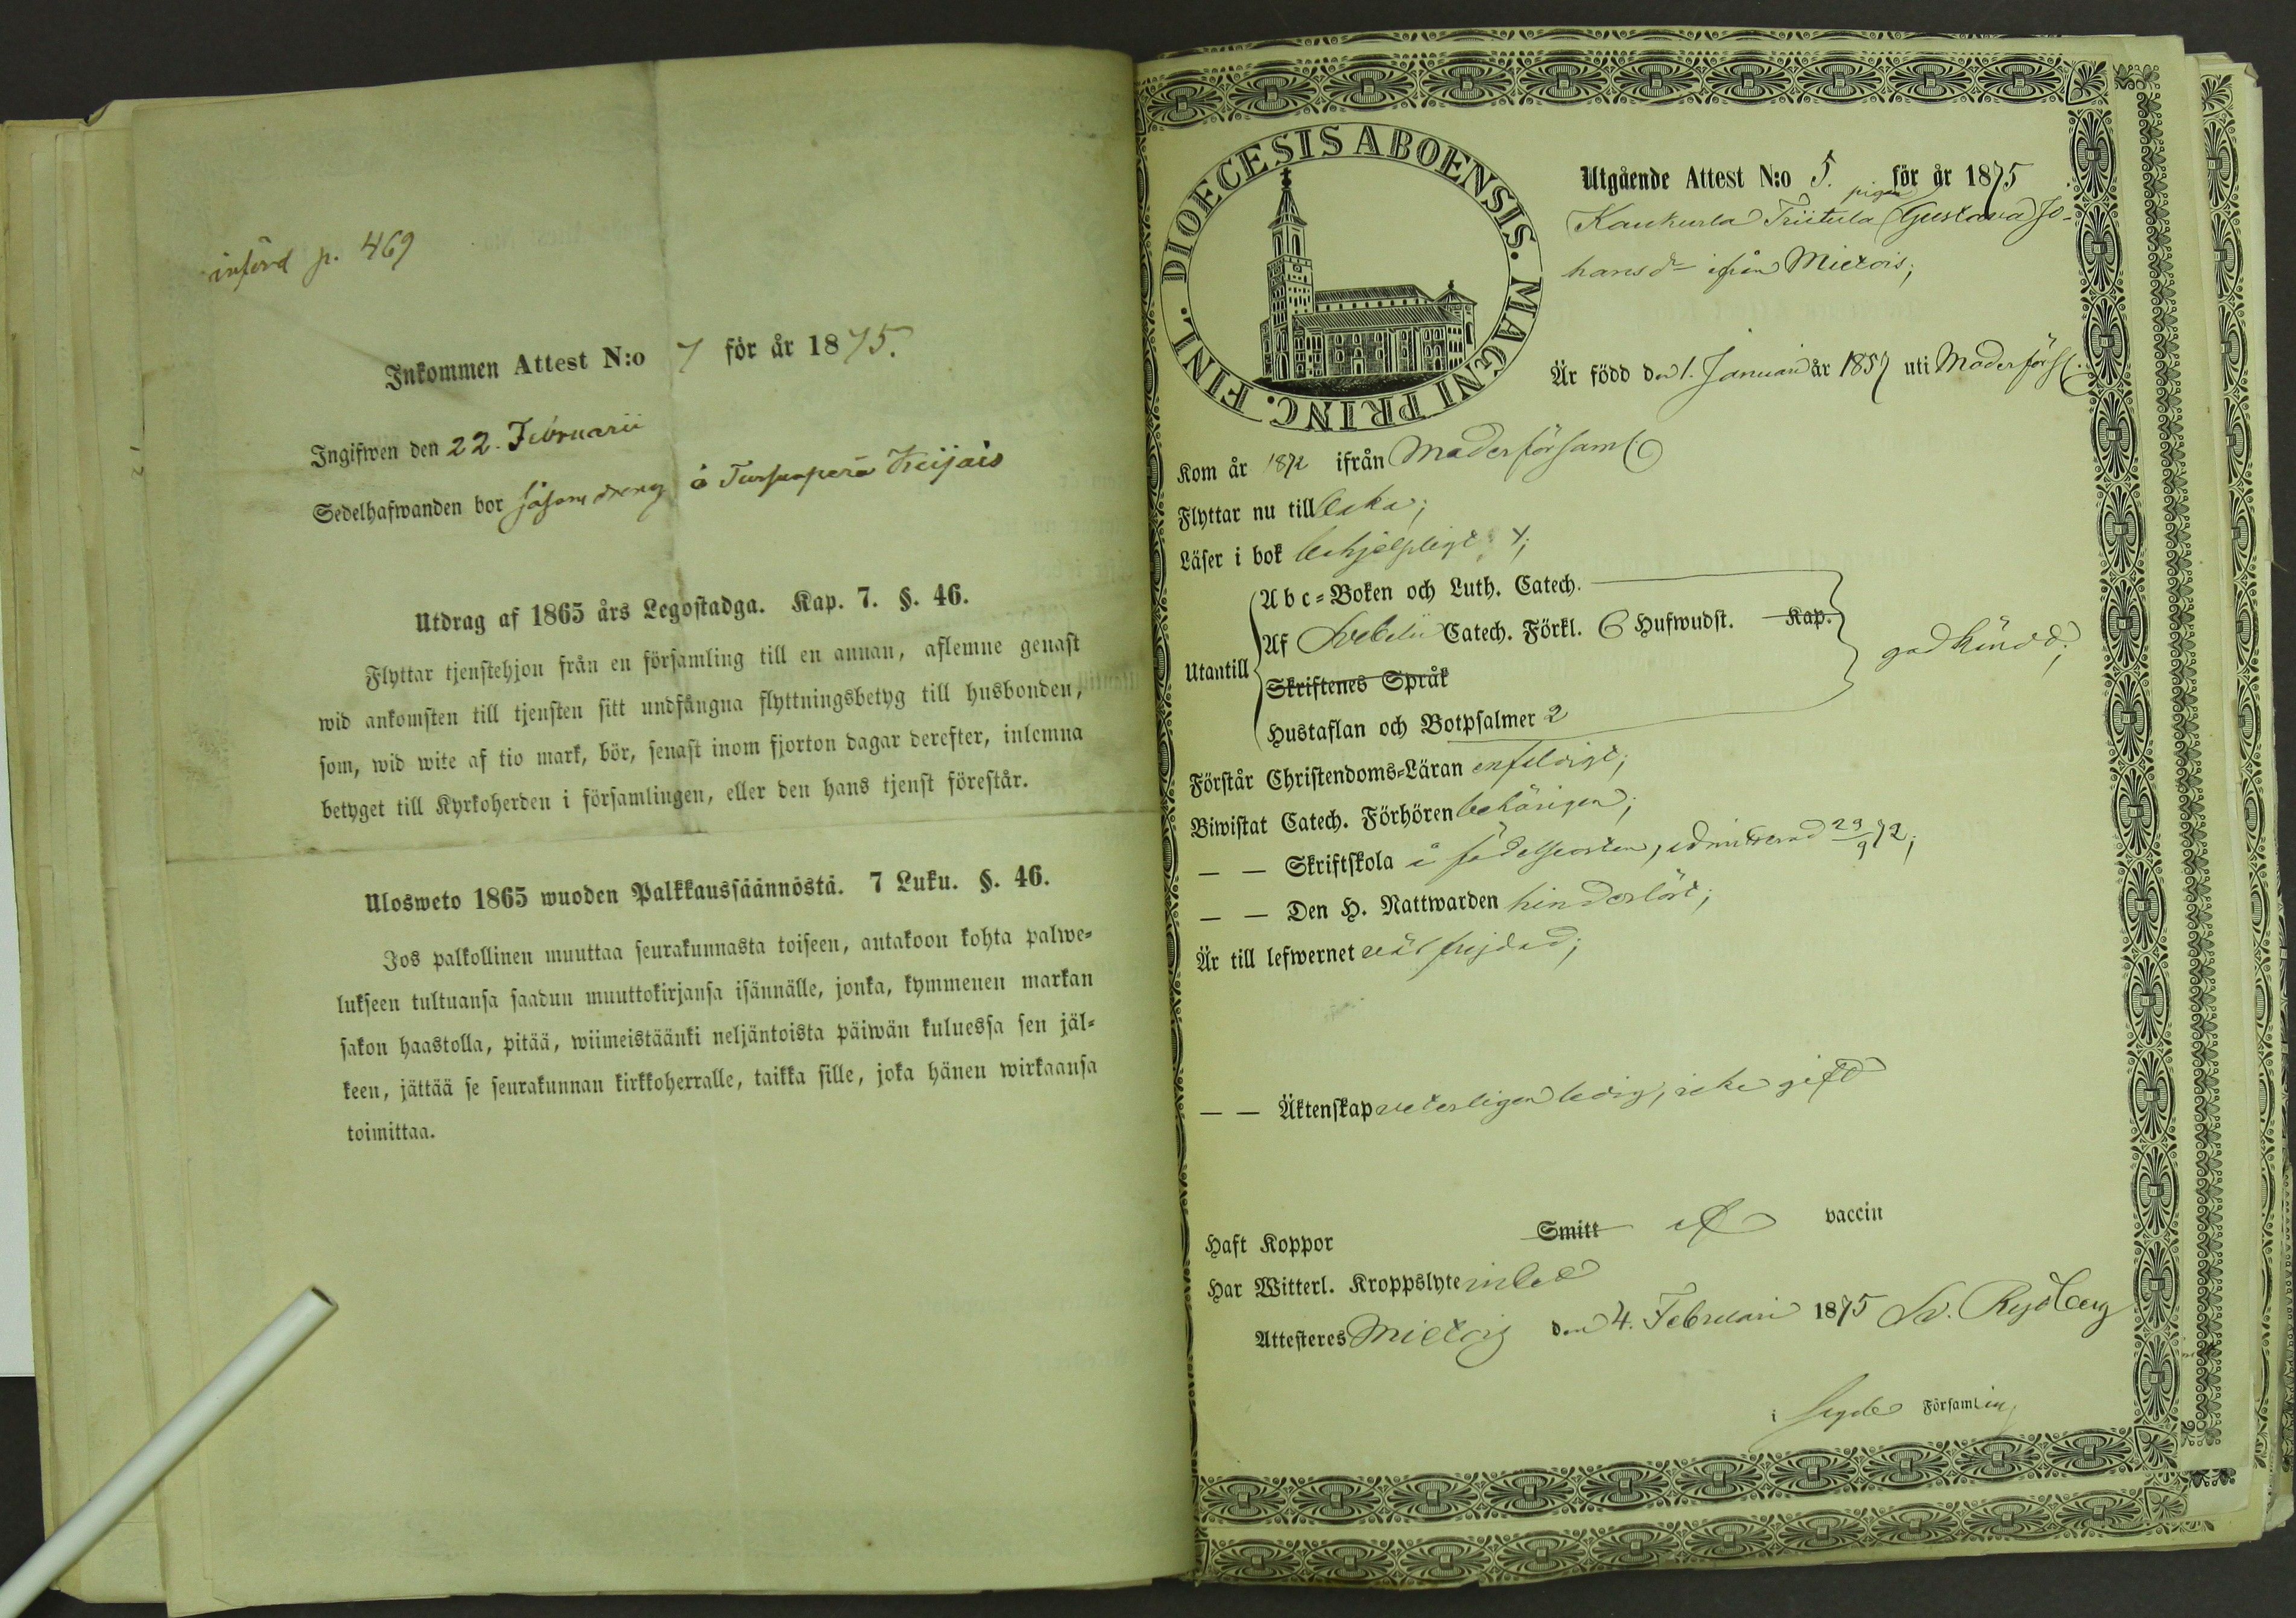 införd p. 469
Inkommen Attest N:o 7 för år 1875.
Ingifwen den 22. Februarii
Sedelhafwanden bor såsom dreng å
Utdrag af 1865 års Legostadga. Kap. 7. §. 46.
Flyttar tjenstehjon från en församling till en annan, aflemne genast
wid ankomsten till tjensten sitt undfångna flyttningsbetyg till husbonden,
som, wid wite af tio mark, bör, senast inom fjorton dagar derefter, inlemna
betyget till Kyrkoherden i församlingen, eller den hans tjenst förestår.
Ulosweto 1865 wuoden Palkkaussäännöstä. 7 Luku. §. 46.
Jos palkollinen muuttaa seurakunnasta toiseen, antakoon kohta palwe-
lukseen tultuansa saadun muuttokirjansa isännälle, jonka, kymmenen markan
sakon haastolla, pitää, wiimeistäänki neljäntoista päiwän kuluessa sen jäl-
keen, jättää se seurakunnan kirkkoherralle, taikka sille, joka hänen wirkaansa
toimittaa.
DIOECESIS ABOENSIS. MAGNI PRINC. FINL.
Utgående Attest N:o 5. för år 1875
pigan
Kaukurla Triitula Gustava Jo-
hansdr ifrån Mietois;
Är född den 1. Januari år 1857 uti Moderförs:
Kom år 1872 ifrån Moderförsaml:
Flyttar nu till
Läser i bok behjelpligt;
Utantill
Abc-Boken och Luth. Catech.
Af Svebelii Catech. Förkl. 6 Hufwudst. Kap.
Skriftenes Språk
Hustaflan och Botpsalmer 2
godkänd;
Förstår Christendoms-Läran enfaldigt;
Biwistat Catech. Förhören behörigen;
— — Skriftskola i födelseorten, admitterad 29/9 72;
— — Den H. Nattwarden hinderlöst;
Är till lefwernet väl frejdad;
— — Äktenskap veterligen ledig, icke gift
Haft Koppor Smitt af vaccin
Har Witterl. Kroppslyte intet
Attesteres Mietois den 4. Februari 1875 Sv. Rydberg
i Församling